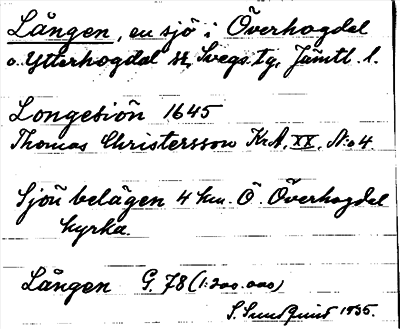 Lången, en sjö i Överhogdal
o. Ytterhogdal sn, Svegs tg, Jämtl. l.
Longesiön 1645
Thomas Christersson K.A. XX. N:o 4.
Sjön belägen 4 km. Ö. Överhogdal
kyrka.
Lången G. 78 (1:200.000)
S. Sundquist 1935.